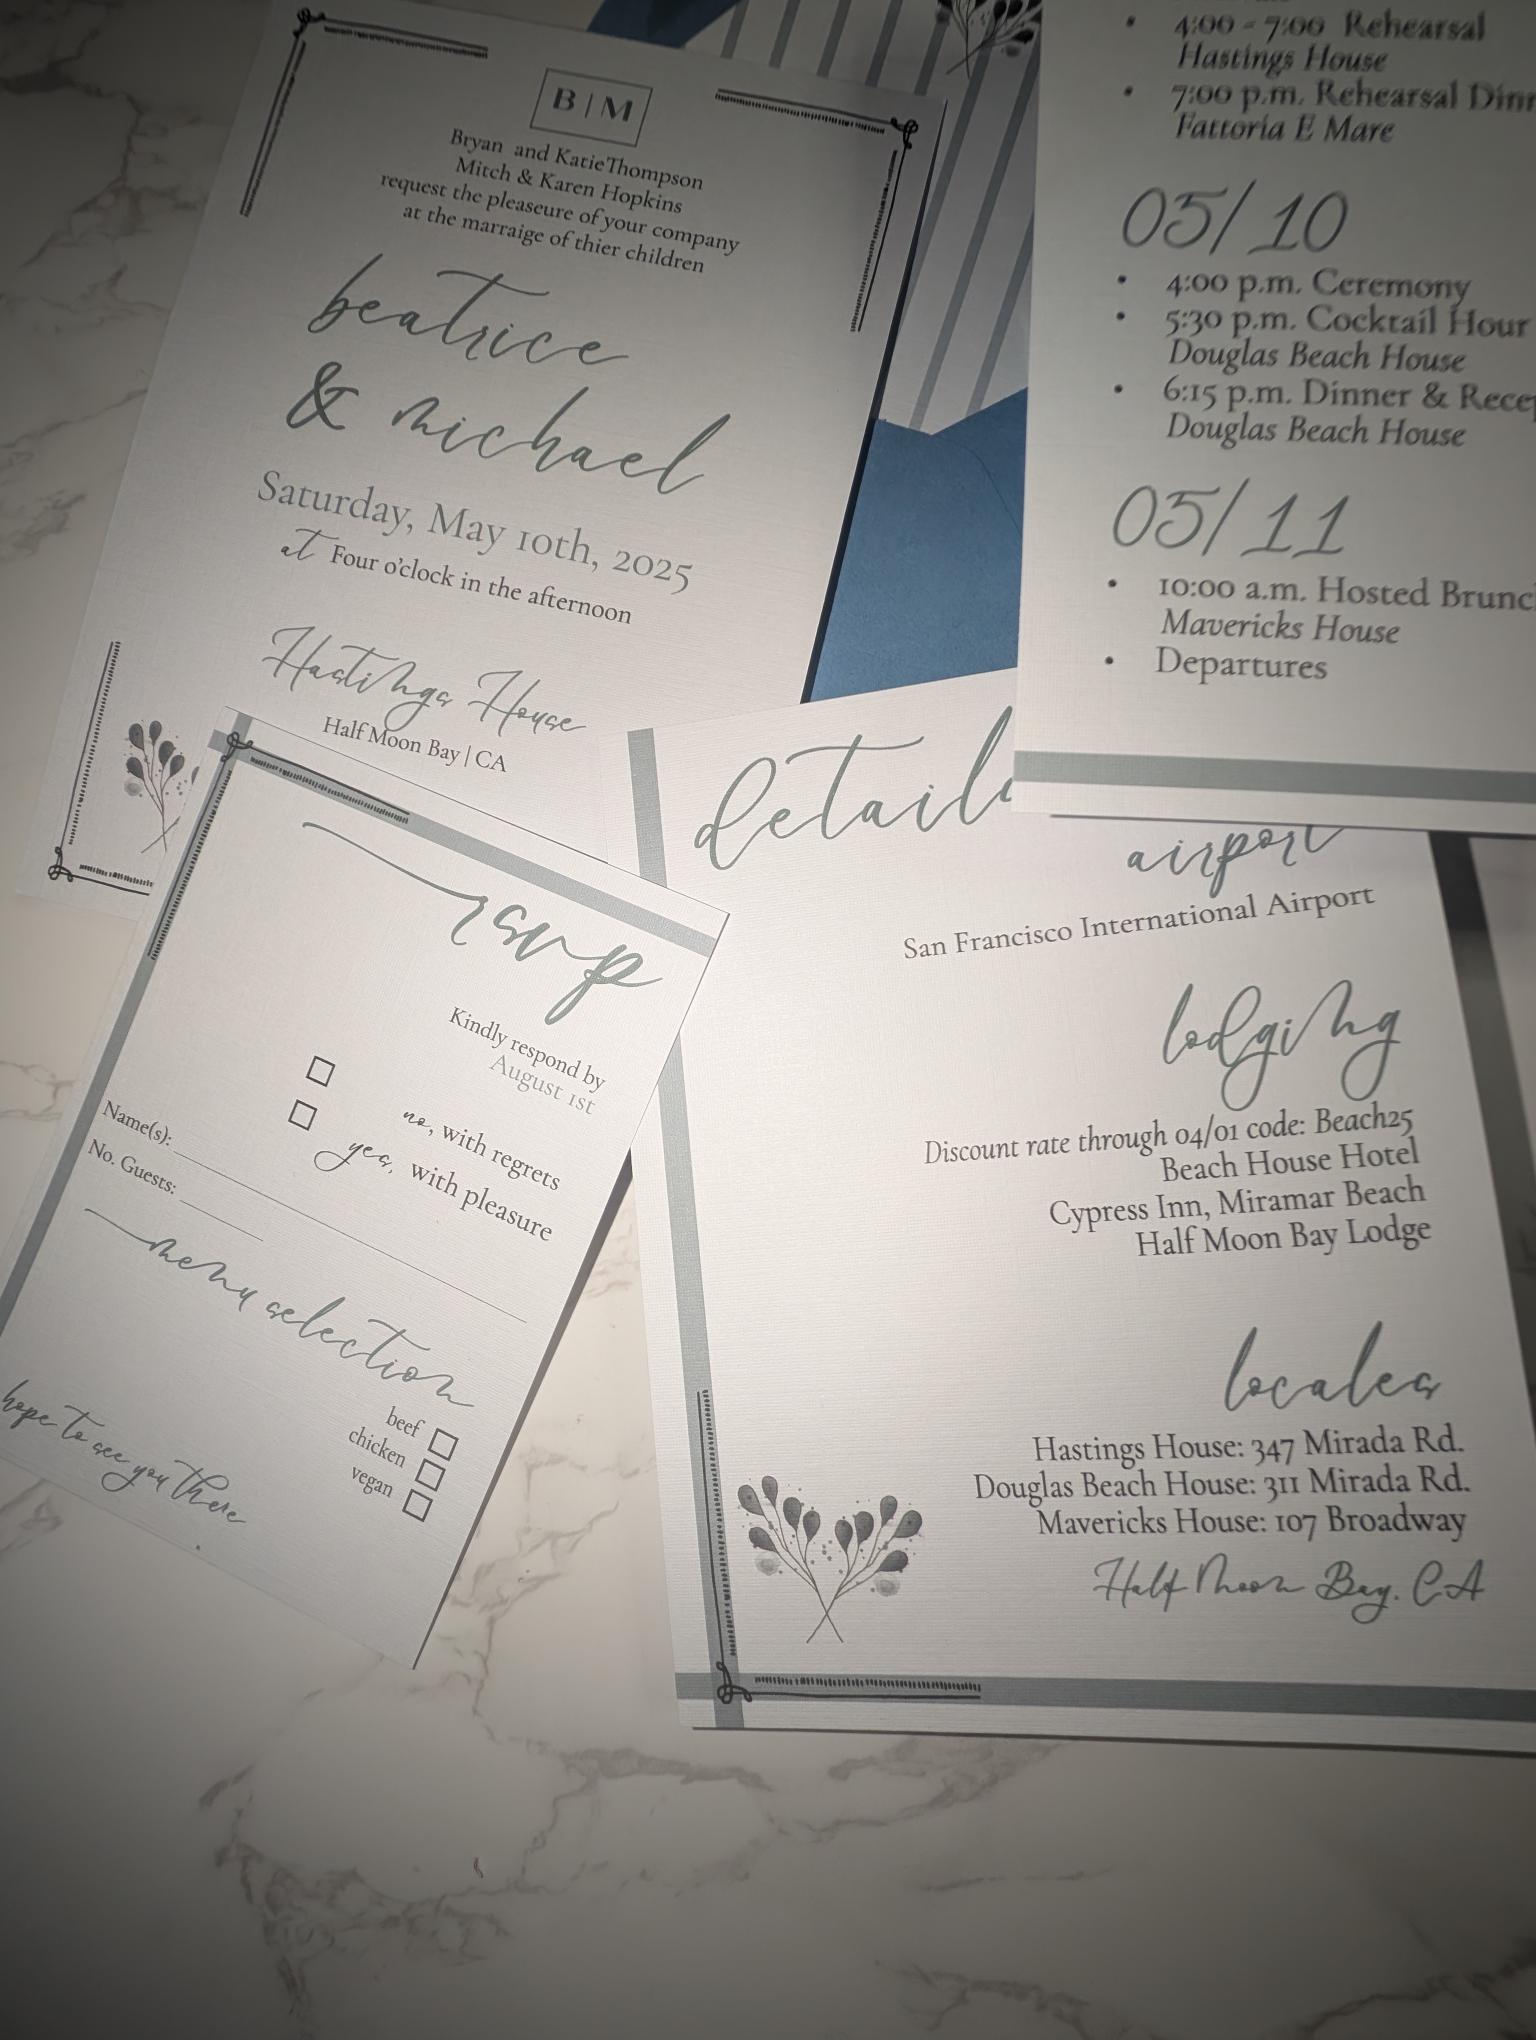 B | M
Bryan and KatieThompson
Mitch & Karen Hopkins
request the pleaseure of your company
at the marraige of thier children
beatrice
& michael
Saturday, May 10th, 2025
at Four o'clock in the afternoon
Hastings House
Half Moon Bay | CA
4:00 - 7:00 Rehearsal
Hastings House
7:00 p.m. Rehearsal
Fattoria E Mare
05/10
4:00 p.m. Ceremony
5:30 p.m. Cocktail Hour
Douglas Beach House
6:15 p.m. Dinner &
Douglas Beach House
05/11
10:00 a.m. Hosted
Mavericks House
Departures
rsvp
Kindly respond by
August 1st
no, with regrets
yes, with pleasure
Name(s):
No. Guests:
menu selection
beef
chicken
vegan
hope to see you there
details
airport
San Francisco International Airport
lodging
Discount rate through 04/01 code: Beach25
Beach House Hotel
Cypress Inn, Miramar Beach
Half Moon Bay Lodge
locales
Hastings House: 347 Mirada Rd.
Douglas Beach House: 311 Mirada Rd.
Mavericks House: 107 Broadway
Half Moon Bay, CA